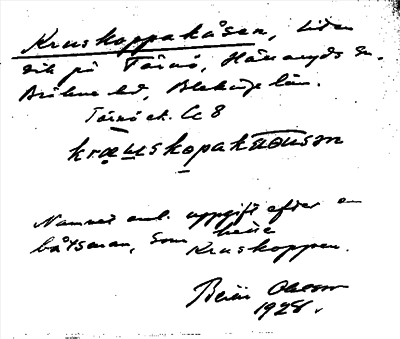 Kruskoppakåsen, liten
vik på Tärnö, Hällaryds sn.
Bräkne hd, Blekinge län.
Tärnö ek. C 8
kræuskopakåusən
Namnet enl. uppgift efter en
båtsman, som hette
Kruskoppen.
Olsson
1928.